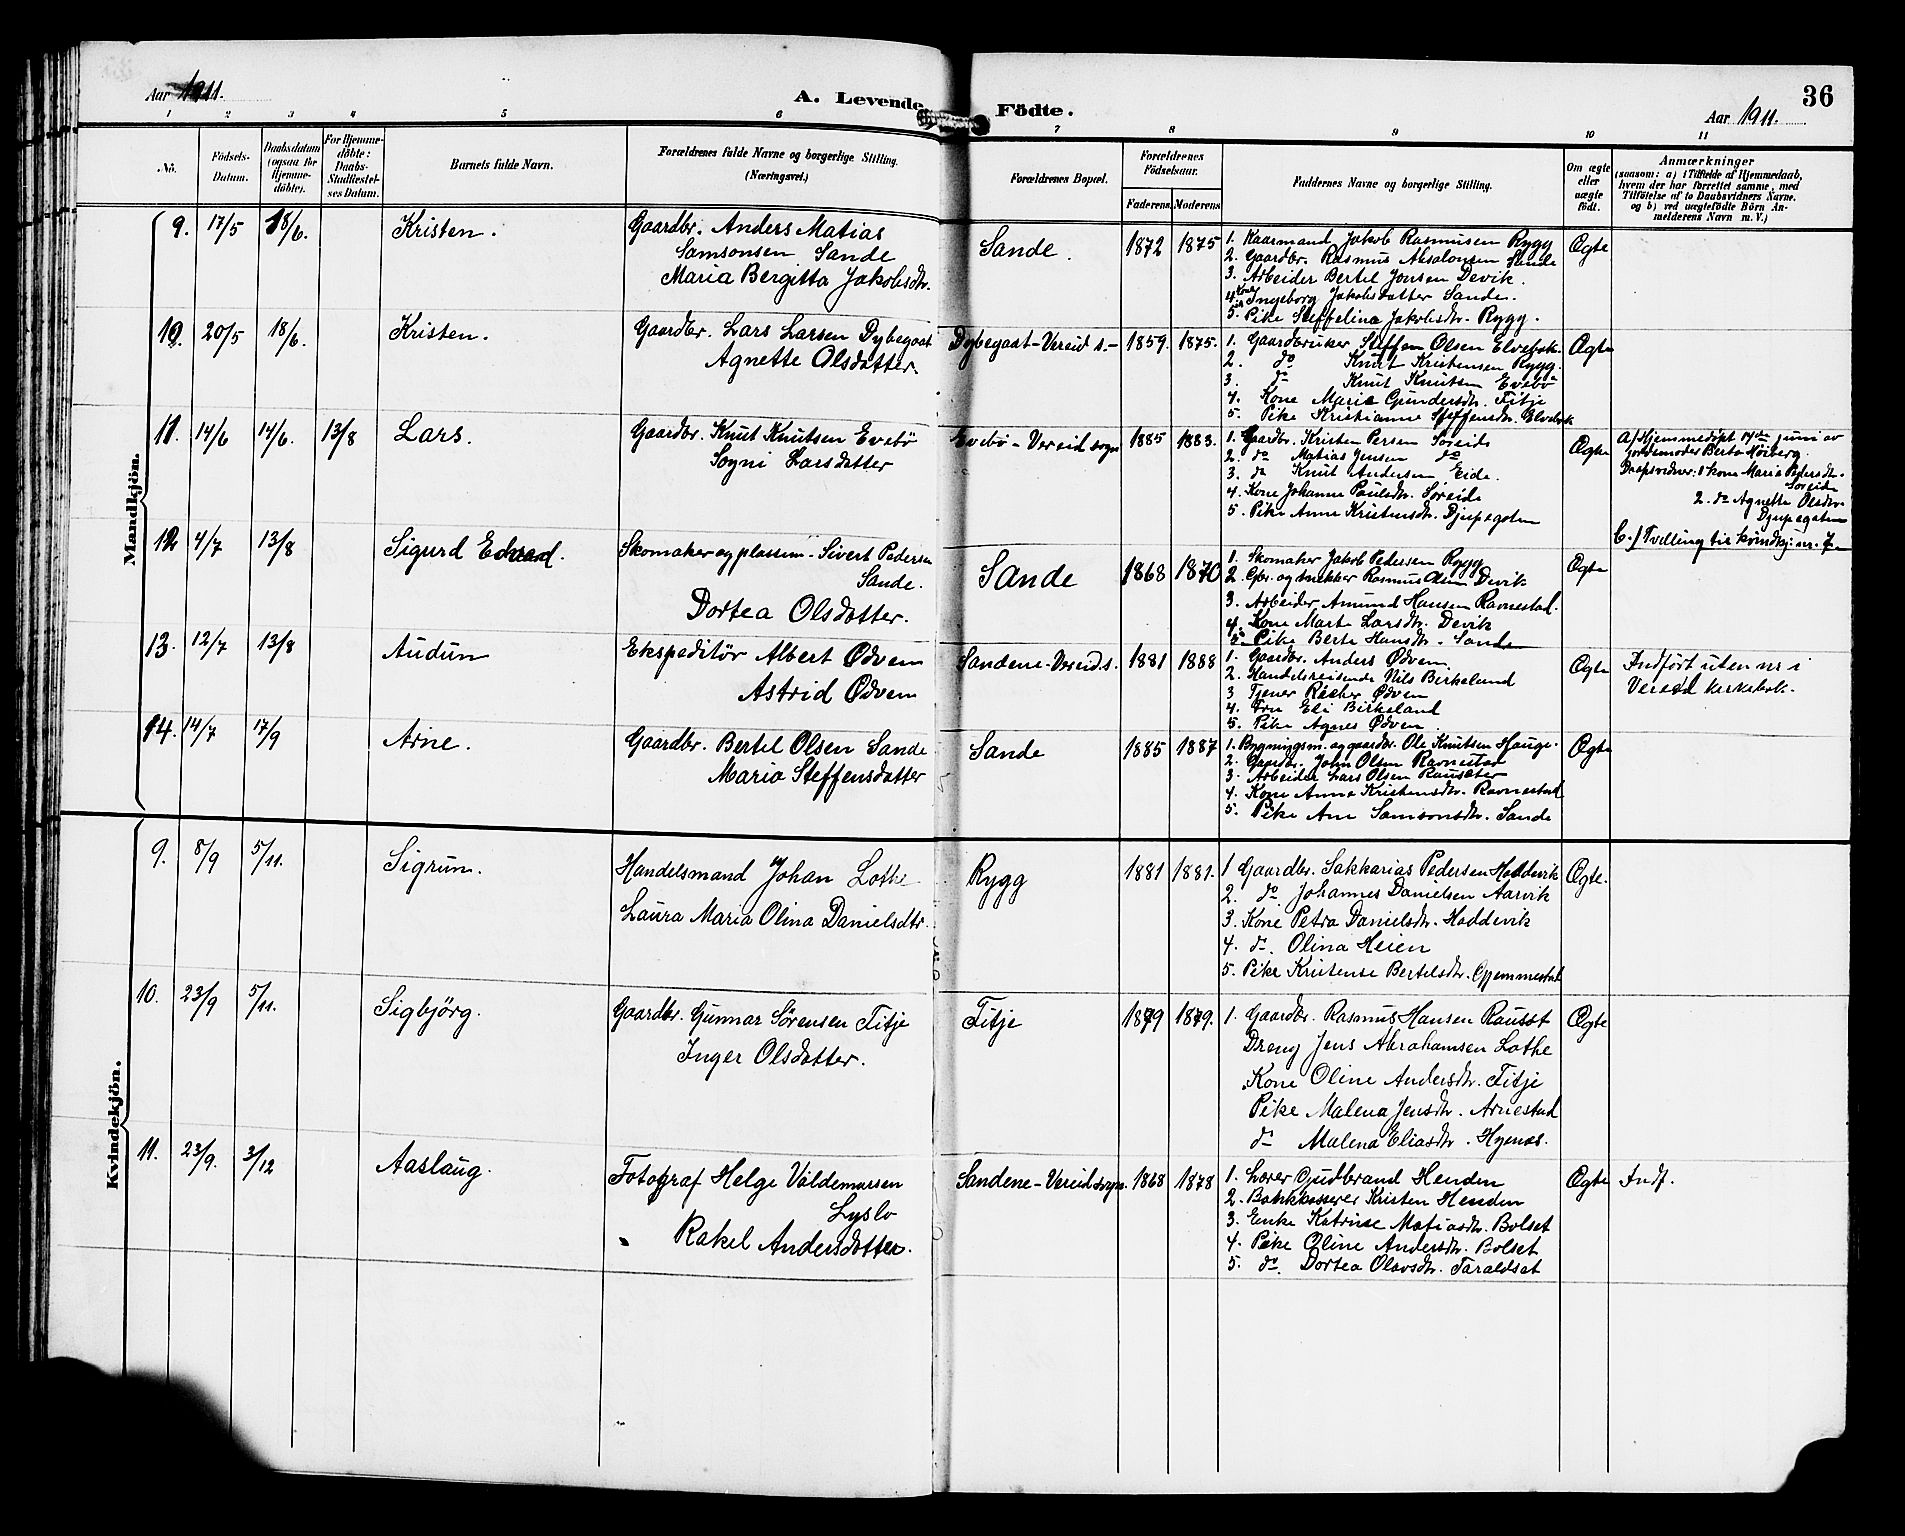 Aar 1911.
A. Levende
Födte.
36
Aar 1911.
1 2 3 4 5 6 7 8 9 10 11
No.
Födsels-
Datum.
Daabsdatum
(ogsaa for
Hjemme-
döbte).
For Hjemme-
döbte:
Daabs-
Stadfæstel-
ses Datum.
Barnets fulde Navn.
Forældrenes fulde Navne og borgerlige Stilling.
(Næringsvei.)
Forældrenes Bopæl.
Forældrenes
Födselsaar.
Faderens. Moderens.
Faddernes Navne og borgerlige Stilling.
Om ægte
eller
uægte
födt.
Anmærkninger
(saasom: a) i Tilfælde af Hjemmedaab,
hvem der har forrettet samme, med
Tilföielse af to Daabsvidners Navne.
og b) ved uægtefödte Börn An-
melderens Navn m. V.)
Mandkjön.
9. 17/5 18/6. Kristen.
Gaardbr. Anders Matias
Samsonsen Sande
Maria Bergitta Jakobsdtr.
Sande. 1872 1875
1. Kaarmand Jakob Rasmusen Rygg
2. Gaardbr. Rasmus Absalonsen Sande
3. Arbeider Bertel Jonsen Devik.
4. Kone Ingeborg Jakobsdatter Sande.
5. Pike Steffeline Jakobsdtr. Rygg.
Ægte
10. 20/5 18/6. Kristen.
Gaardbr. Lars Larsen Dybegaat
Agnette Olsdatter.
Dybegaat-Vereid s.- 1859. 1875.
1. Gaardbruker Steffen Olsen Elvebak.
2. do Knut Kristensen Rygg.
3. do Knut Knutsen Evebö
4. Kone Marie Gundersdtr. Titje
5. Pike Kristianne Steffensdtr. Elvebak
Ægte
11. 14/6 14/6. 13/8 Lars.
Gaardbr. Knut Knutsen Evebö
Sogni Larsdatter
Evebö-Vereid sogn 1885 1883.
1. Gaardbr. Kristen Persen Söreide
2. do Matias Jensen do
3. do Knut Andersen Eide.
4. Kone Johanne Paulsdtr. Söreide
5. Pike Anne Kristensdtr. Djupegoten
Ægte
a/ Hjemmedöpt 14de juni av
jordemoder Berta Höiberg.
Daapsvidner: 1 kone Maria Pedersdtr.
Söreide
2. do Agnette Olsdtr.
Djupegaten
b./ Tvilling til kvindkj. nr. 7
12 4/7 13/8 Sigurd Edvard.
Skomaker og plassm. Sivert Pedersen
Sande.
Dortea Olsdatter.
Sande 1868 1870
1. Skomaker Jakob Pedersen Rygg
2. Gbr. og snekker Rasmus Olsen Devik
3. Arbeider Amund Hansen Ravnestad.
4. Kone Marte Larsdtr. Devik
5. Pike Berte Hansdtr. Sande
Ægte
13. 12/7 13/8 Audun
Ekspeditör Albert Ödven
Astrid Ödven
Sandene-Vereid s. 1881 1888
1. Gaardbr. Anders Ödven
2. Handelsreisende Nils Birkeland
3 Tjener Rasmus Ödven
4. Fru Eli Birkeland
5. Pike Agnes Ödven
Ægte
Indfört uten nr i
Vereid kirkebok.
14. 14/7 17/9 Arne.
Gaardbr. Bertel Olsen Sande
Maria Steffensdatter
Sande 1885 1887
1. Bygningsm. og gaardbr. Ole Knutsen Hauge.
2. Gaardbr. John Olsen Ravnestad
3. Arbeider Lars Olsen Rauseter
4. Kone Anna Kristensdtr. Ravnestad
5. Pike Ane Samsonsdtr. Sande
Ægte
Kvindekjön.
9. 8/9 5/11. Sigrun.
Handelsmand Johan Lothe
Laura Maria Olina Danielsdtr.
Rygg 1881 1881.
1 Gaardbr. Sakkarias Pedersen Haddevik
2. do Johannes Danielsen Aarvik
3. Kone Petra Danielsdtr. Haddevik
4. do. Olina Heien
5. Pike Kristense Bertelsdtr. Gjemmestad
Ægte.
10. 23/9 5/11. Sigbjörg.
Gaardbr. Gunnar Sörensen Titje
Inger Olsdatter.
Titje 1879 1879.
1. Gaardbr. Rasmus Hansen Rausst
Dreng Jens Abrahamsen Lothe
Kone Oline Andersdtr. Titje
Pike Malena Jensdtr. Arnestad
do Malena Eliasdtr. Hyenes.
Ægte
11. 23/9. 3/12 Aaslaug.
Fotograf Helge Valdemarsen
Lyslo
Rakel Andersdatter.
Sandene-Vereid sogn. 1868 1878
1. Lærer Gudbrand Henden
2. Bankkasserer Kristen Henden
3. Enke Katrine Matiasdtr. Bolset
4. Pike Oline Andersdtr. Bolset
5. do. Dortea Olavsdtr. Taraldset
Ægte
Indf.